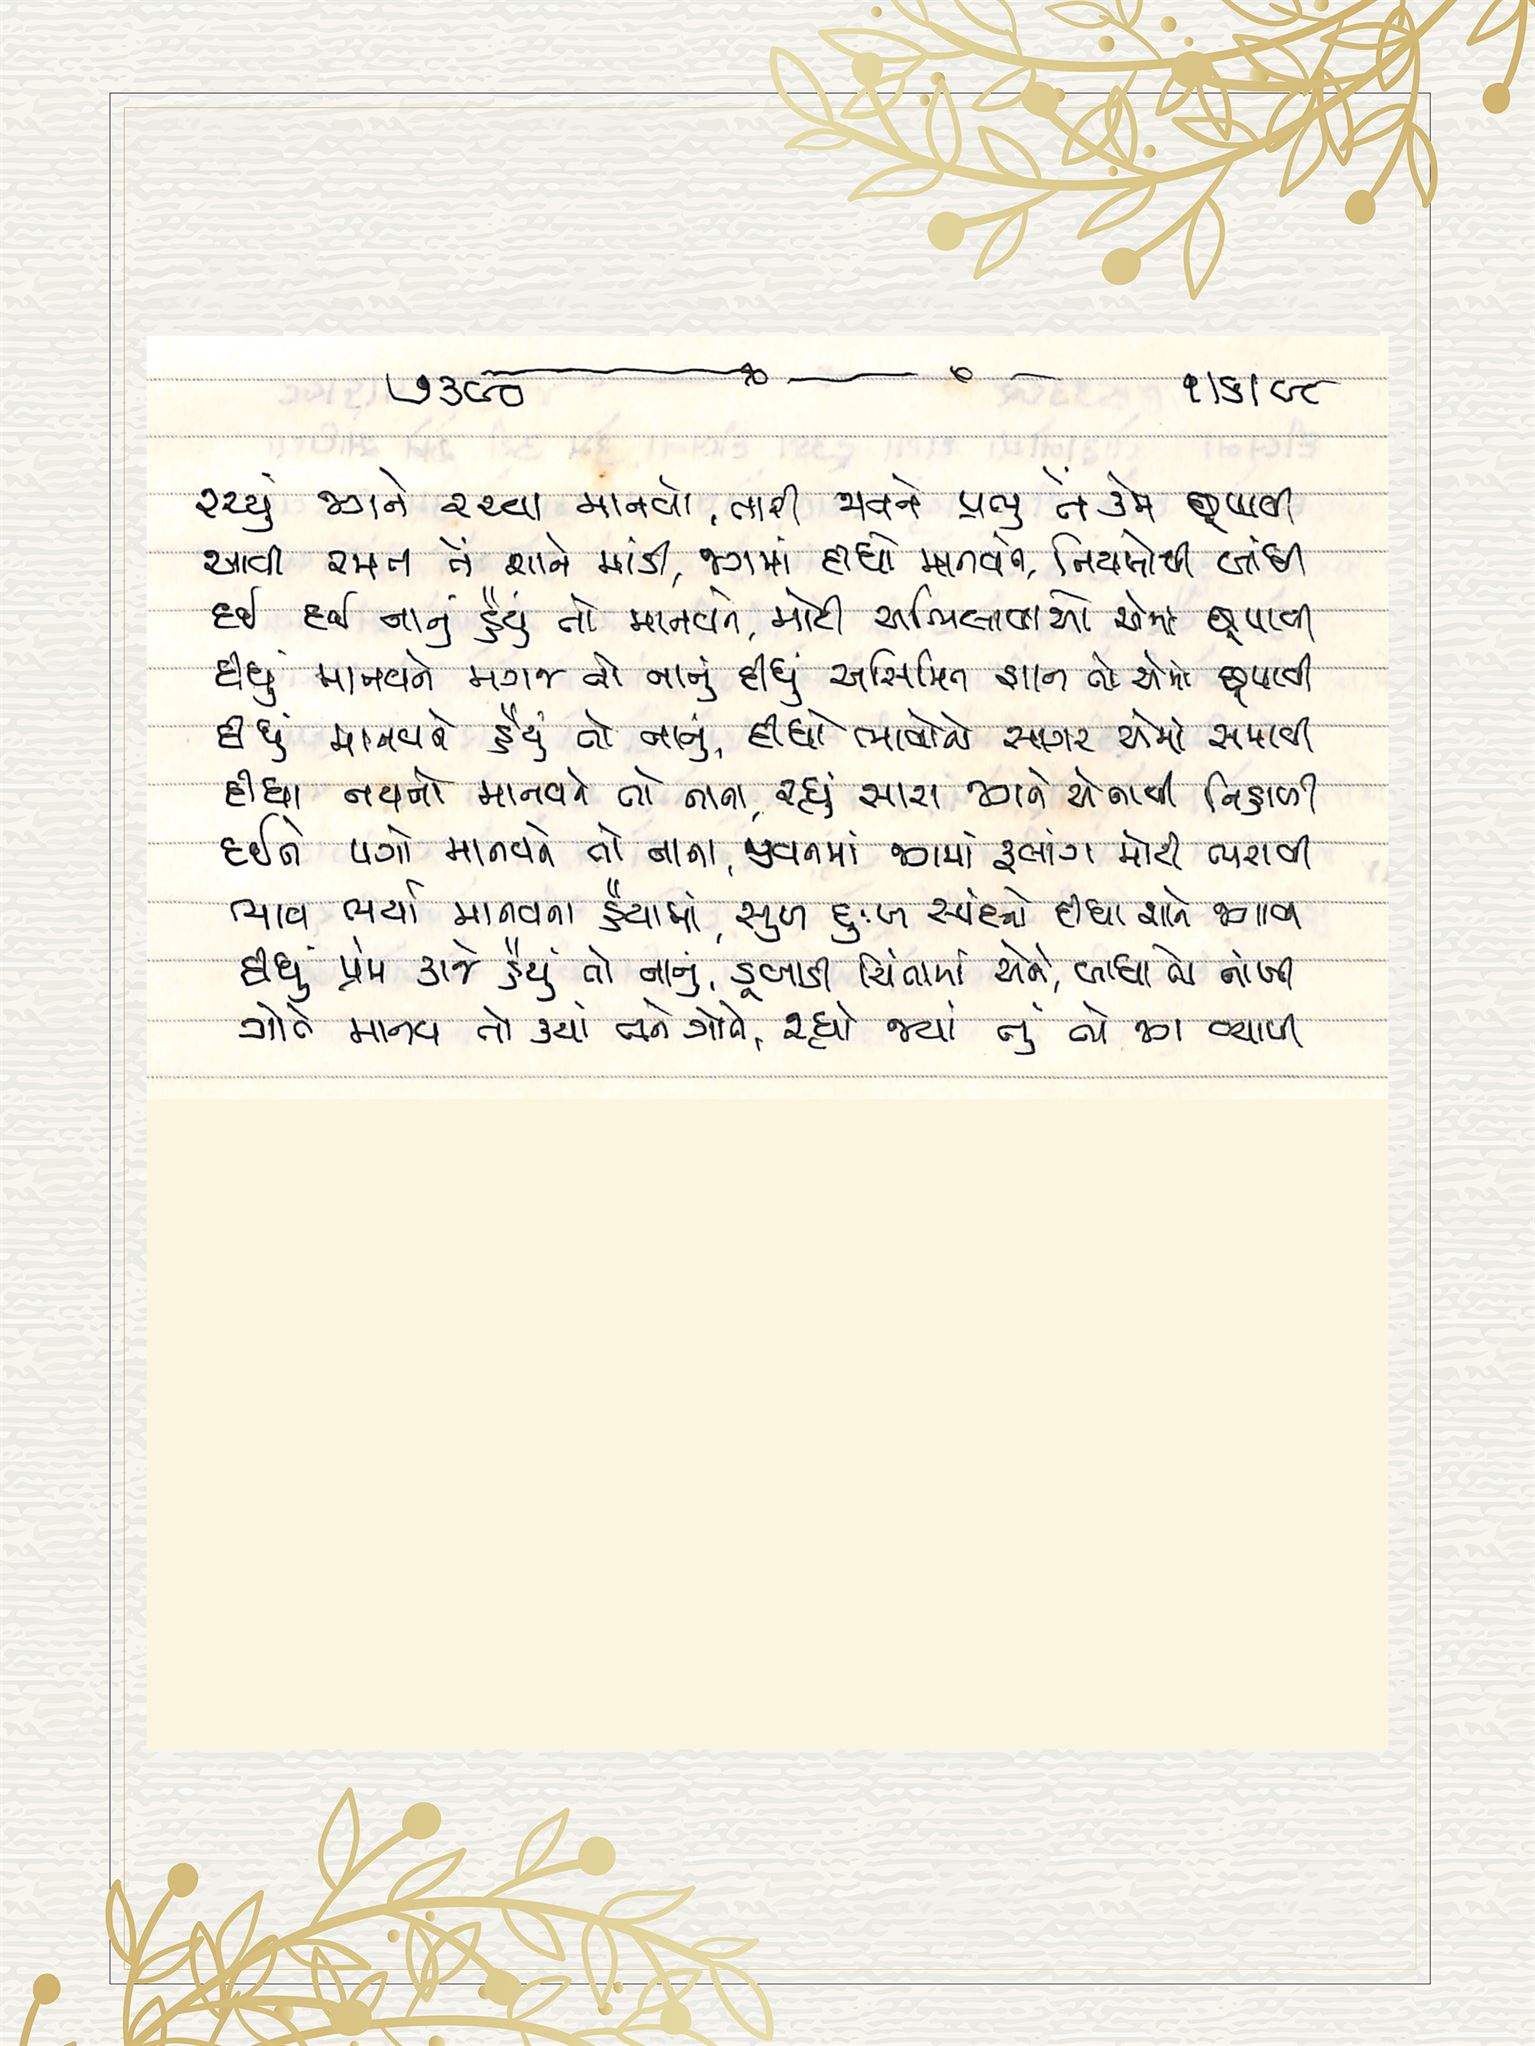 ૭૩૯૦ ૧/૬/૯૮
રચ્યું જગને રચ્યા માનવો, તારી જાતને પ્રભુ તેં કેમ છૂપાવી
આવી રમત તેં શાને માંડી, જગમાં દીધો માનવને, નિયમોથી બાંધી
દઈ દઈ નાનું હૈયું તો માનવને, મોટી અભિલાષાઓ એમાં છૂપાવી
દીધું માનવને મગજ તો નાનું દીધું અસિમિત જ્ઞાન તો એમાં છૂપાવી
દીધું માનવને હૈયું તો નાનું, દીધો ભાવોનો સાગર એમાં સમાવી
દીધા નયનો માનવને તો નાના, રહ્યું સારા જગને એનાથી નિહાળી
દઈને પગો માનવને તો નાના, જીવનમાં જગમાં છલાંગ મોટી ભરાવી
ભાવ ભર્યા માનવના હૈયામાં, સુખ દુઃખ સ્પંદનો દીધા શાને જગાવી
દીધું પ્રેમ કાજે હૈયું તો નાનું, ડૂબાડી ચિંતામાં એને, બાધા તો નાંખી
ગોતે માનવ તો ક્યાં તને ગોતે, રહ્યો જ્યાં તું તો જગ વ્યાપી